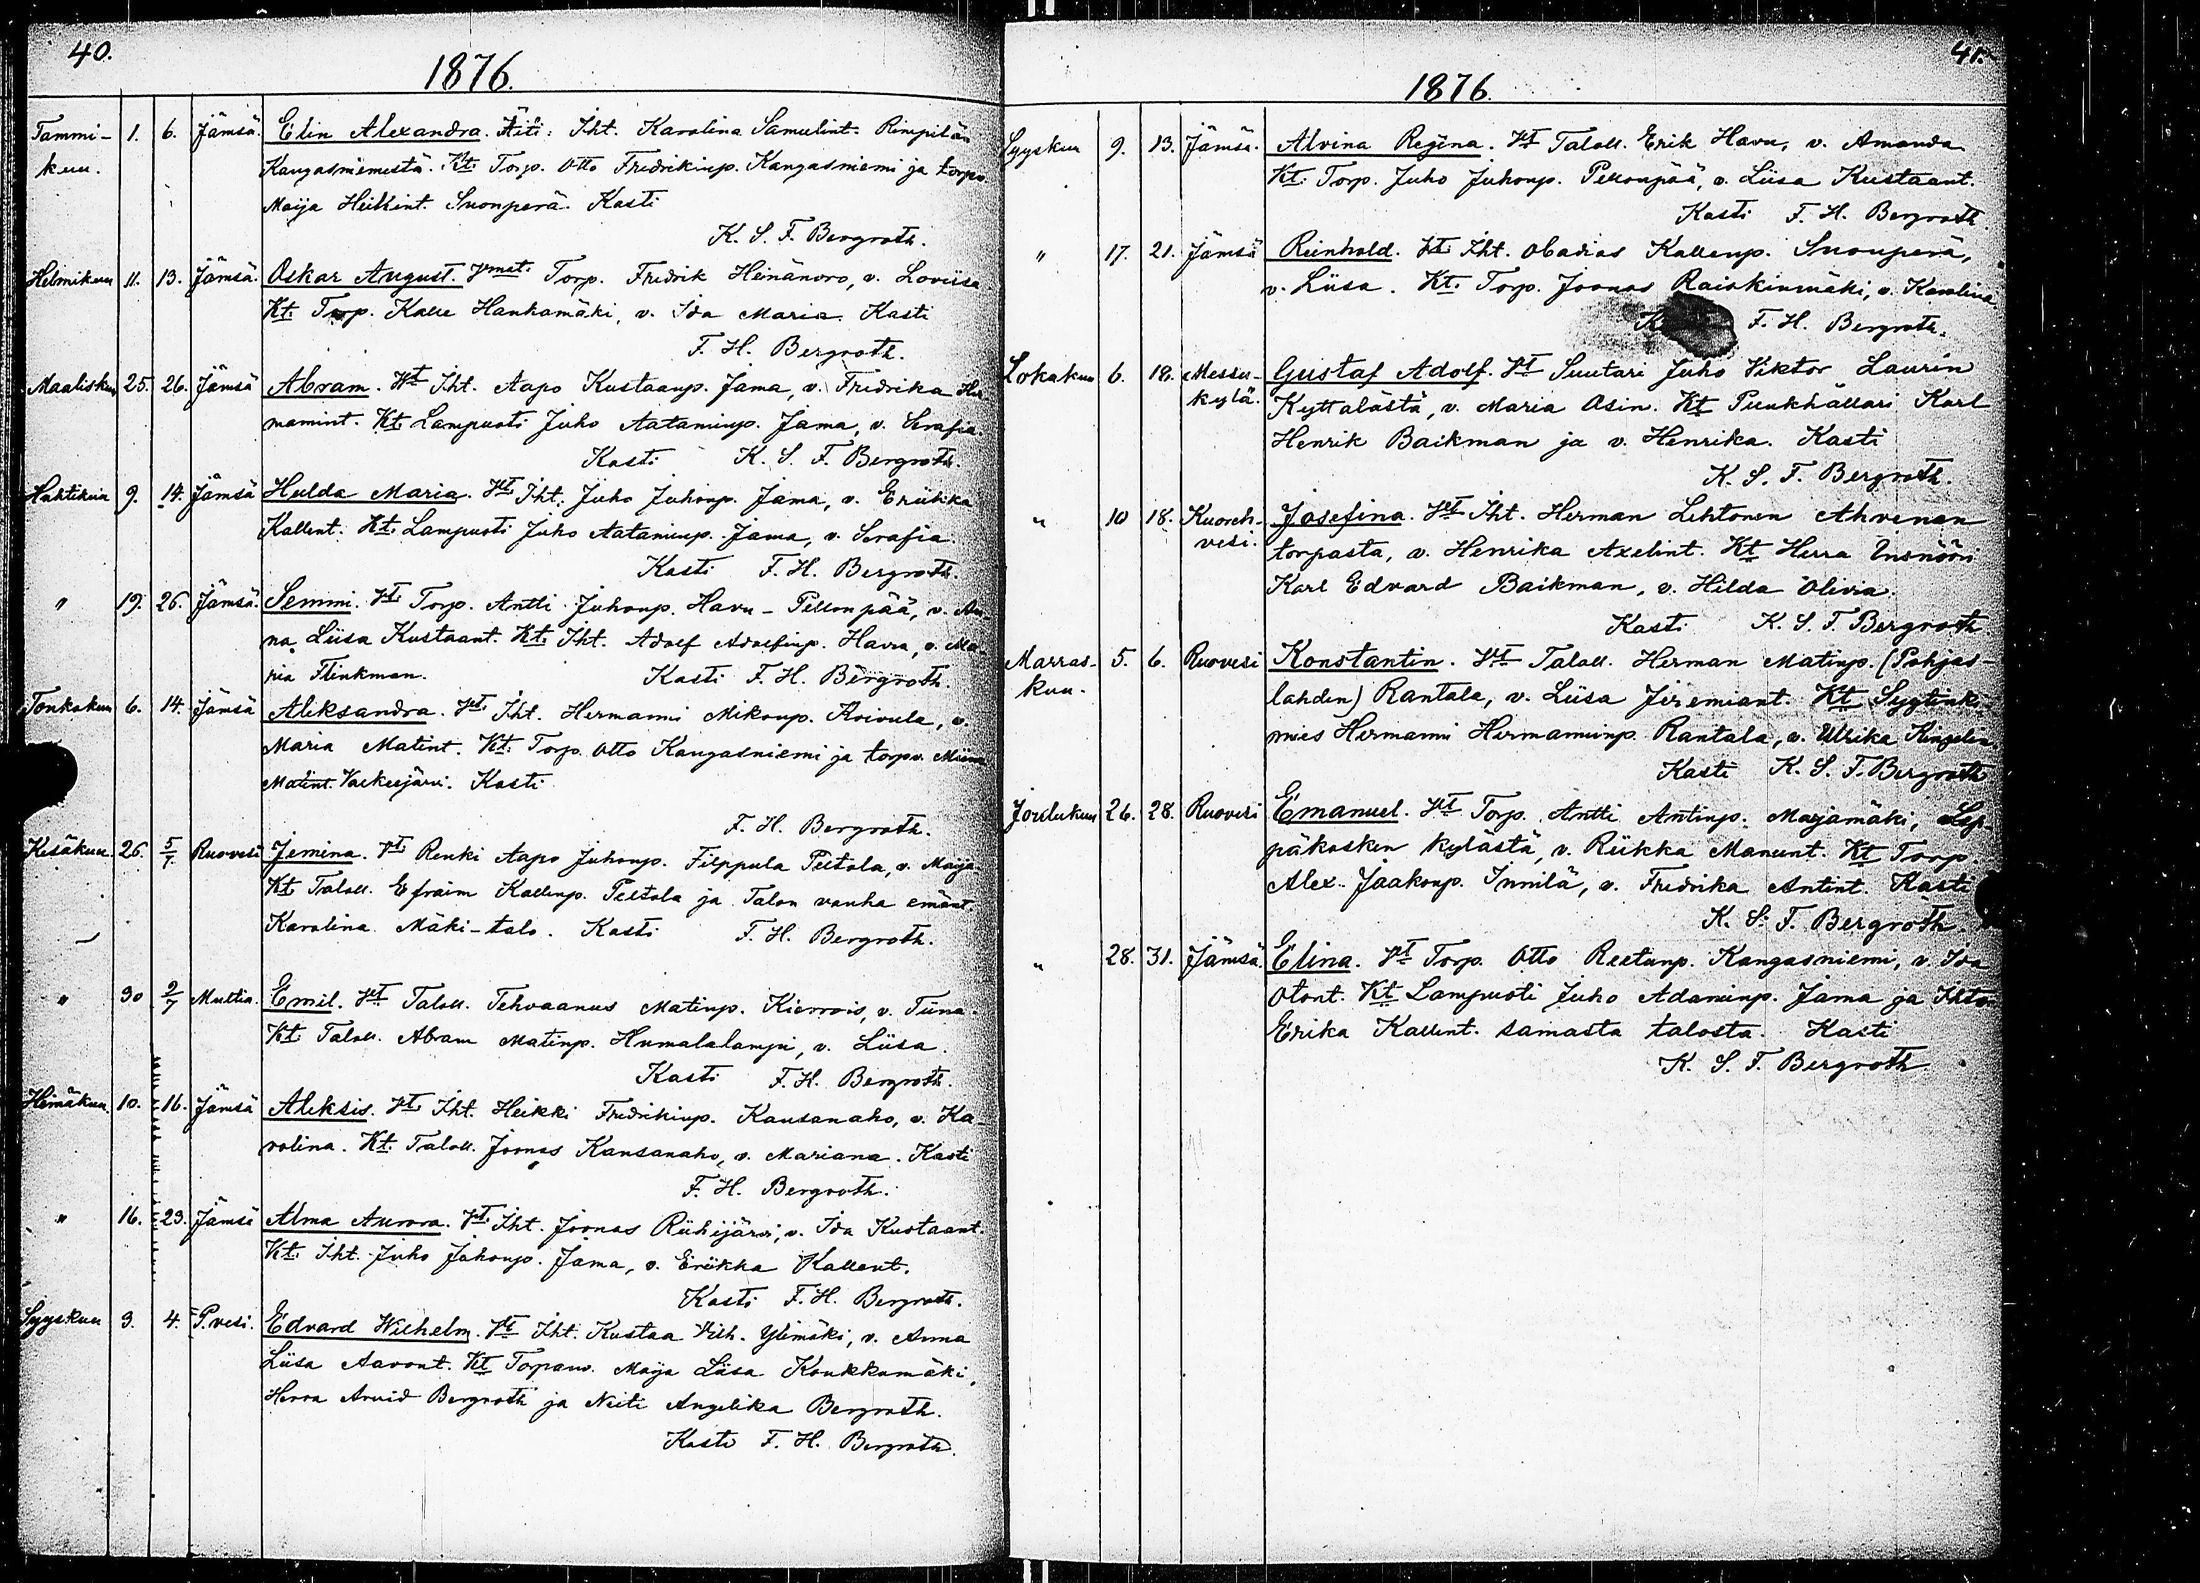 40.
1876.
Tammi- 1. 6. Jämsä. Elin Alexandra. Äiti: Iht. Karolina Samulint. Rimpilän
kuu. Kangasniemestä. Kt. Torp. Otto Fredrikinp. Kangasniemi ja torpv.
Maija Heikkint. Suonperä. Kasti
K. S. F. Bergroth.
Helmikuu 11. 13. Jämsä. Oskar August. Vmat. Torp. Fredrik Heinänoro, v. Loviisa
Kt. Torp. Kalle Hankamäki, v. Ida Maria. Kasti
F. H. Bergroth.
Maalisku 25. 26. Jämsä Abram. Vt Iht. Aapo Kustaanp. Jama, v. Fredrika Her
manint. Kt. Lampuoti Juho Aataminp. Jama, v. Serafia.
Kasti K. S. F. Bergroth.
Huhtikuu 9. 14. Jämsä Hulda Maria. Vt. Iht. Juho Juhonp. Jama, v. Eriikka
Kallent. Kt. Lampuoti Juho Aataminp. Jama, v. Serafia.
Kasti F. H. Bergroth.
" 19. 26. Jämsä. Semmi. Vt. Torp. Antti Juhonp. Havu-Pellonpää, v. An-
na Liisa Kustaant. Kt. Iht. Adolf Adolfinp. Havu, v. Ma-
ria Flinkman. Kasti F. H. Bergroth.
Toukokuu 6. 14. Jämsä Aleksandra. Vt. Iht. Hermanni Mikonp. Koivula, v.
Maria Matint. Kt. Torp. Otto Kangasniemi ja torpv. Miina
Matint. Valkeejärvi. Kasti
F. H. Bergroth.
Kesäkuu 26. 5/7 Ruovesi Jemina. Vt. Renki Aapo Juhonp. Filppula Peltola, v. Maija
Kt Taloll. Efraim Kallenp. Peltola ja Talon vanha emänt.
Karolina Mäki-talo. Kasti F. H. Bergroth.
" 30 2/7 Multia. Emil. Vt Taloll. Tehvaanus Matinp. Kierrois, v. Tiina.
Kt Taloll. Abram Matinp. Humalalampi, v. Liisa.
Kasti F. H. Bergroth.
Heinäkuu 10. 16. Jämsä Aleksis. Vt. Iht. Heikki Fredrikinp. Kansanaho, v. Ka-
rolina. Kt. Taloll. Joonas Kansanaho, v. Mariana. Kasti
F. H. Bergroth.
" 16. 23. Jämsä Alma Aurora. Vt. Iht. Joonas Riihijärvi, v. Ida Kustaant.
Kt. Iht. Juho Juhonp. Jama, v. Eriikka Kallent.
Kasti F. H. Bergroth.
Syyskuu 3. 4. P.vesi. Edvard Wilhelm. Vt Iht. Kustaa Vilh. Ylimäki, v. Anna
Liisa Aaront. Kt Maija Liisa Koukkumäki,
Herra Arvid Bergroth ja Neiti Angelika Bergroth.
Kasti F. H. Bergroth.
41.
1876.
Syyskuu 9. 13. Jämsä. Alvina Regina. Vt Taloll. Erik Havu, v. Amanda
Kt. Torp. Juho Juhonp. Pellonpää, v. Liisa Kustaant.
Kasti F. H. Bergroth.
" 17. 21. Jämsä Reinhold. Vt. Iht. Obadias Kallenp. Suonperä,
v. Liisa. Kt. Torp. Joonas Raiskinmäki, v. Karolina
F. H. Bergroth.
Lokakuu 6. 18. Messu- Gustaf Adolf. Vt Suutari Juho Viktor Laurin
kylä. Kyttälästä, v. Maria Osin. Kt Puukhallari Karl
Henrik Baikman ja v. Henrika. Kasti
K. S. F. Bergroth.
" 10 18. Kuoreh- Josefina. Vt Iht. Herman Lehtonen Ahvenan
vesi. torpasta, v. Henrika Axelint. Kt Herra Insnööri
Karl Edvard Baikman, v. Hilda Olivia.
Kasti K. S. F. Bergroth
Marras- 5. 6. Ruovesi Konstantin. Vt Taloll. Herman Matinp. (Pohjas-
kuu. lahden) Rantala, v. Liisa Jeremiant. Kt Syytinki-
mies Hermanni Hermanninp. Rantala, v. Ulrika
Kasti K. S. F. Bergroth
Joulukuu 26. 28. Ruovesi Emanuel. Vt Torp. Antti Antinp. Marjamäki, Lep-
päkosken kylästä, v. Riikka Manunt. Kt Torp.
Alex. Jaakonp. Innilä, v. Fredrika Antint. Kasti
K. S. F. Bergroth.
" 28. 31. Jämsä. Elina. Vt Torp. Otto Reetunp. Kangasniemi, v. Ida
Otont. Kt Lampuoti Juho Adaminp. Jama ja Iht.
Erika Kallent. samasta talosta. Kasti
K. S. F. Bergroth